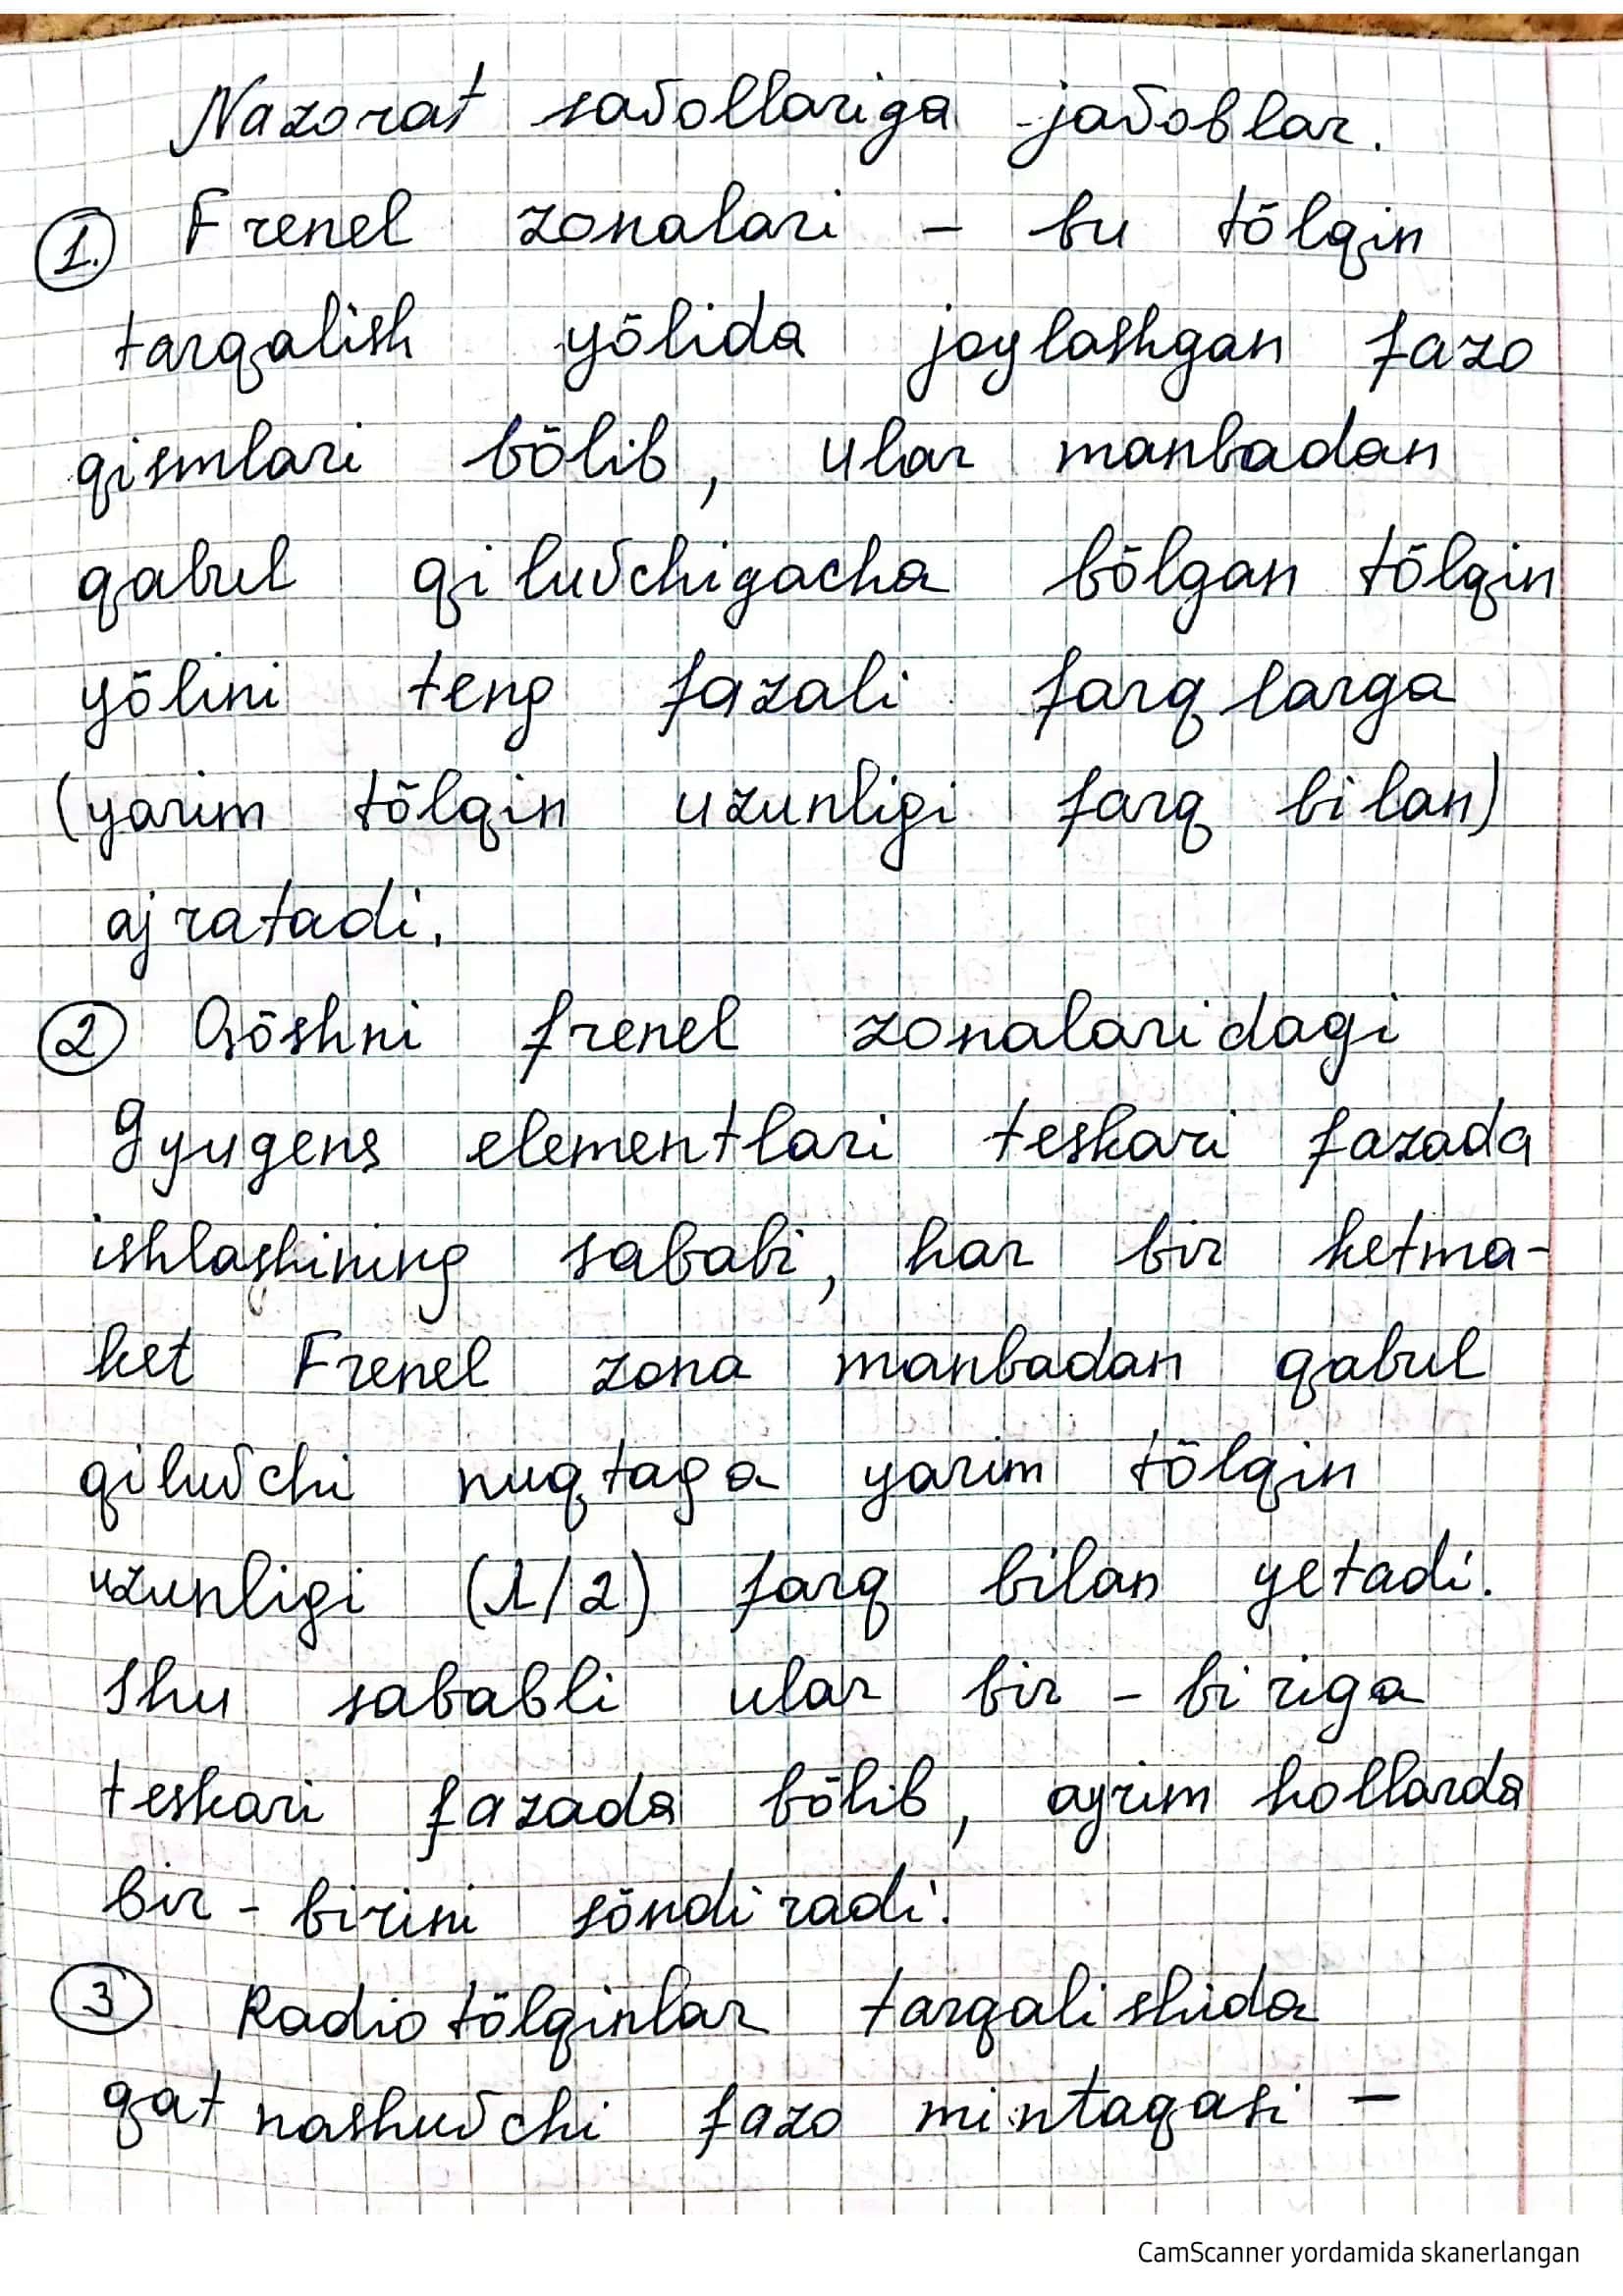 Nazorat savollariga javoblar.
1. Frenel zonalari – bu tōlqin
tarqalish yōlida joylashgan fazo
qismlari bōlib, ular manbadan
qabul qiluvchigacha bōlgan tōlqin
yōlini teng fazali farqlarga
(yarim tōlqin uzunligi farq bilan)
ajratadi.
2 Qōshni frenel zonalaridagi
Gyugens elementlari teskari fazada
ishlashining sababi, har bir ketma-
ket Frenel zona manbadan qabul
qiluvchi nuqtaga yarim tōlqin
uzunligi (λ/2) farq bilan yetadi.
Shu sababli ular bir-biriga
teskari fazada bōlib, ayrim hollarda
bir-birini sōndiradi.
3 Radiotōlqinlar tarqalishida
qatnashuvchi fazo mintaqasi –
CamScanner yordamida skanerlangan